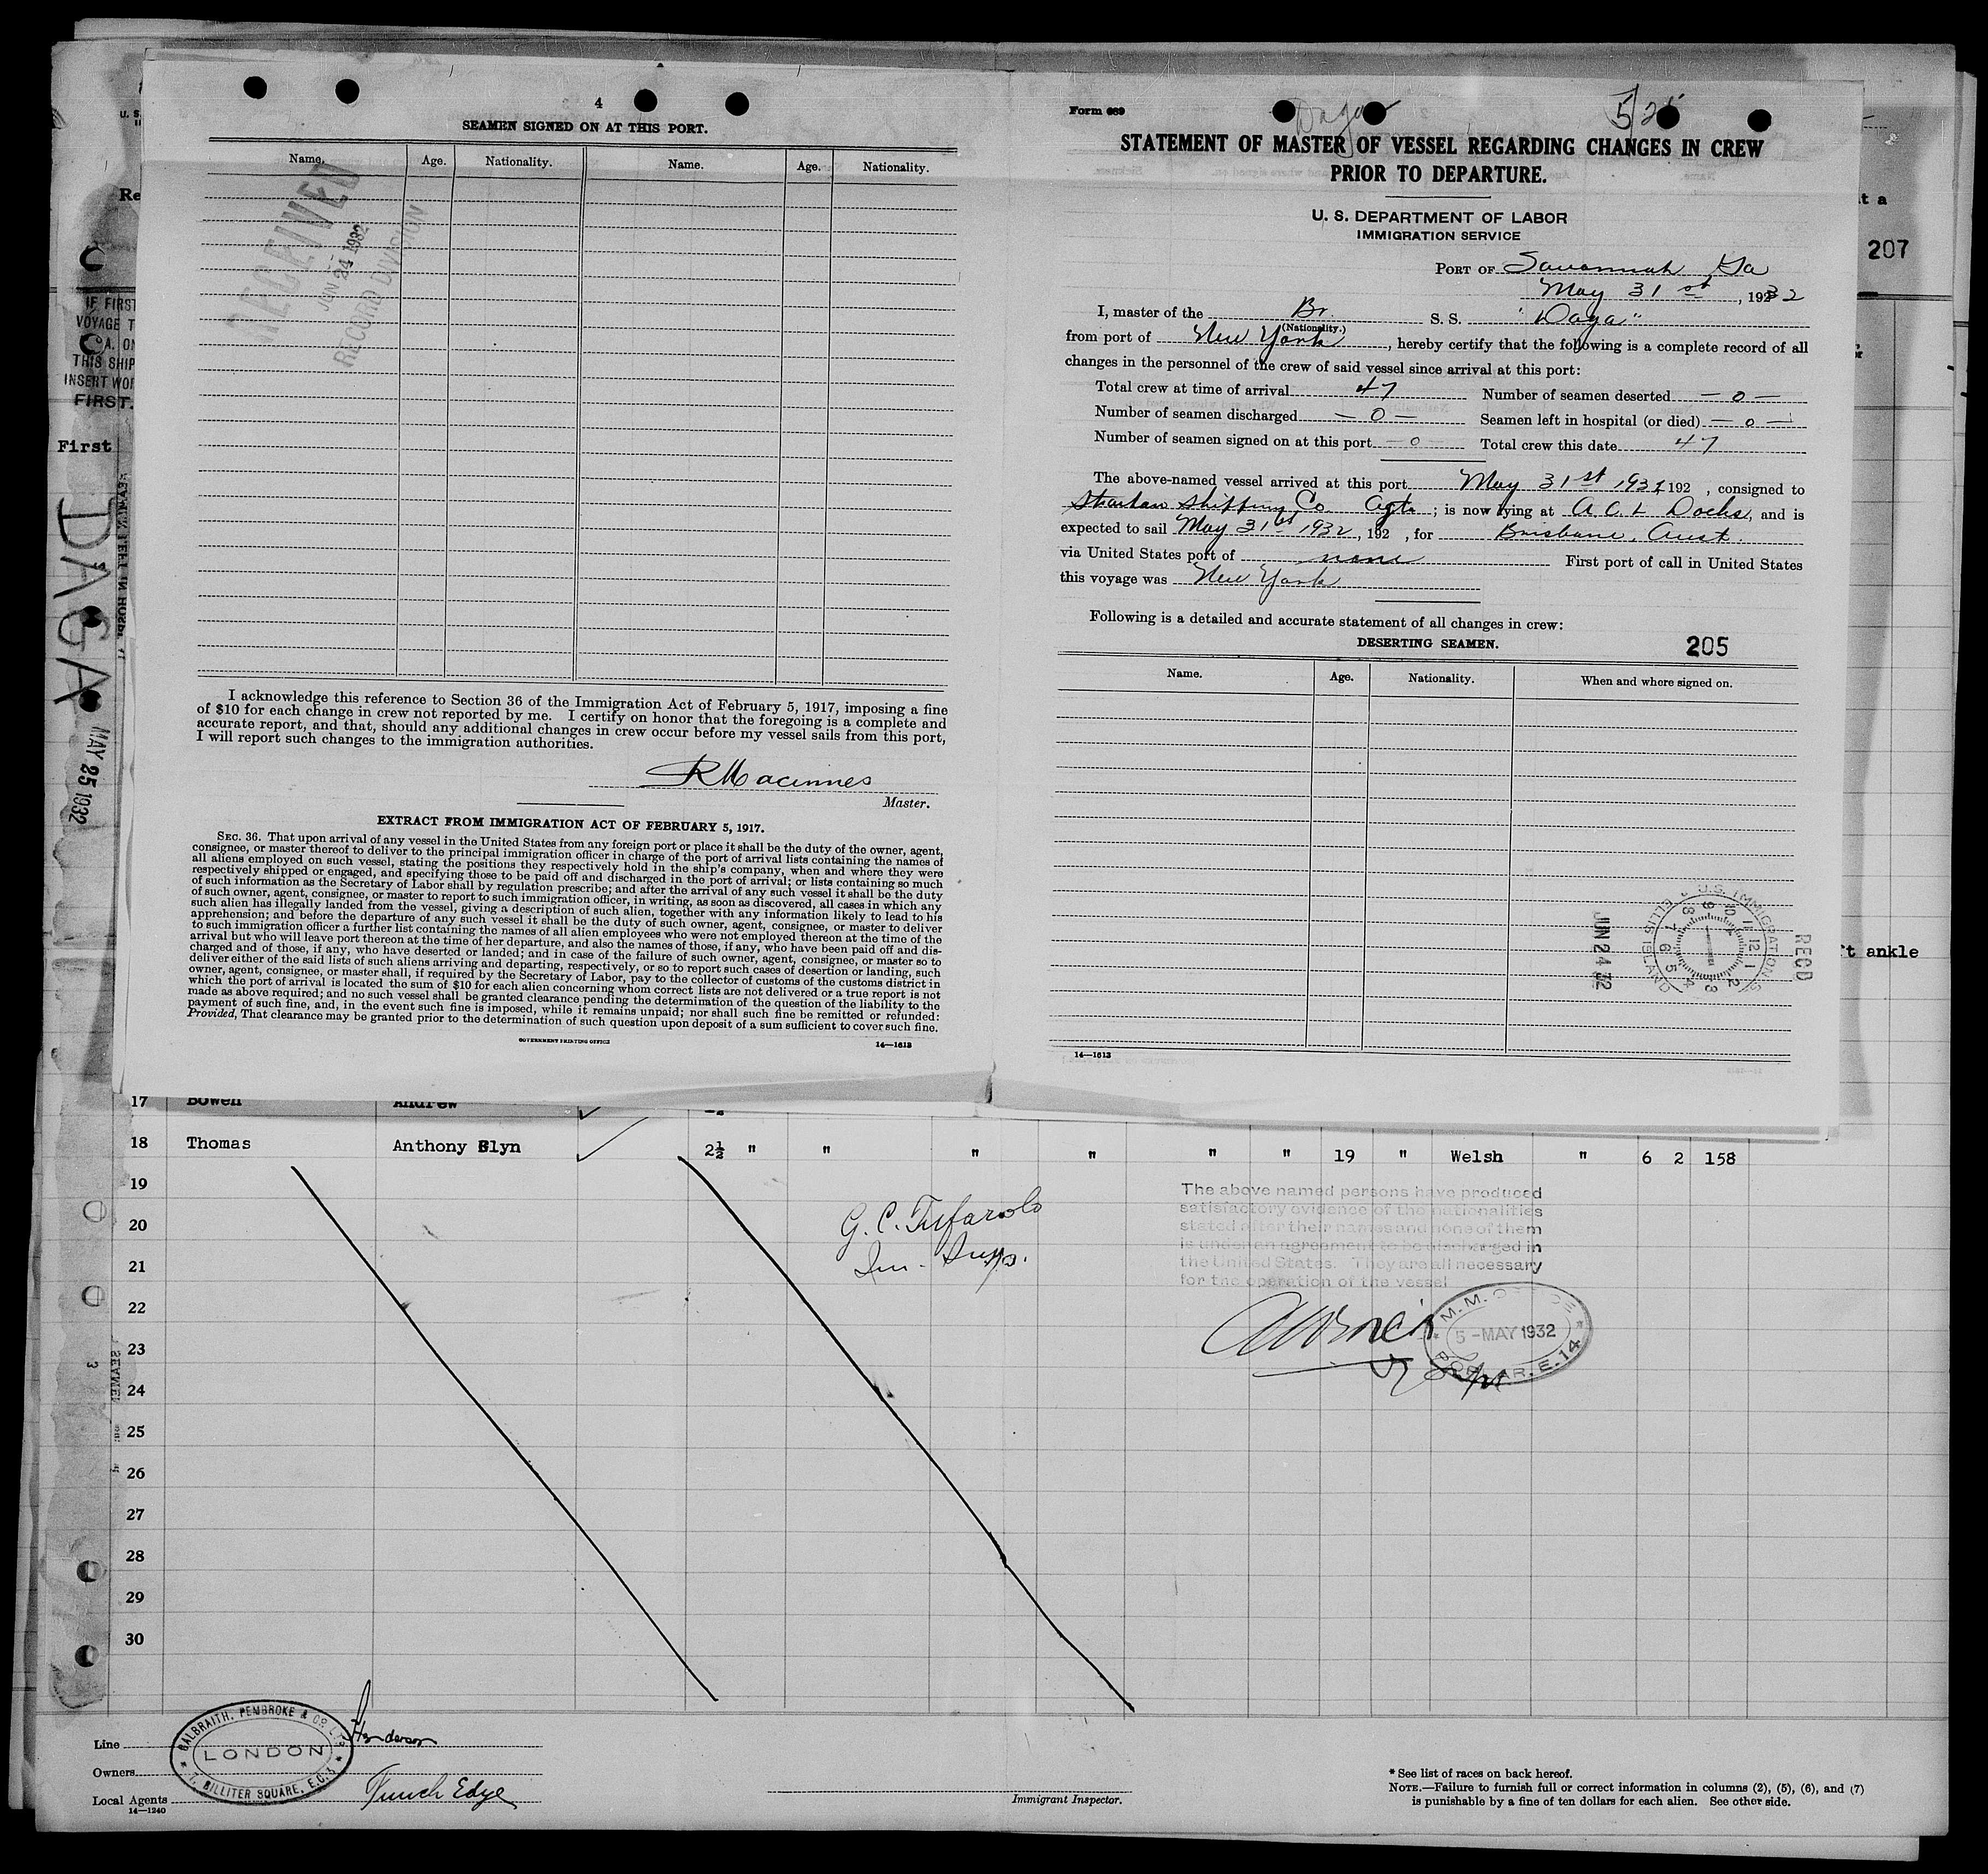 4
SEAMEN SIGNED ON AT THIS PORT.
Name. Age. Nationality. Name. Age. Nationality.
RECEIVED
JUN 24 1932
RECORD DIVISION
I acknowledge this reference to Section 36 of the Immigration Act of February 5, 1917, imposing a fine
of $10 for each change in crew not reported by me. I certify on honor that the foregoing is a complete and
accurate report, and that, should any additional changes in crew occur before my vessel sails from this port,
I will report such changes to the immigration authorities.
R Macinnes
Master.
EXTRACT FROM IMMIGRATION ACT OF FEBRUARY 5, 1917.
SEC. 36. That upon arrival of any vessel in the United States from any foreign port or place it shall be the duty of the owner, agent,
consignee, or master thereof to deliver to the principal immigration officer in charge of the port of arrival lists containing the names of
all aliens employed on such vessel, stating the positions they respectively hold in the ship's company, when and where they were
respectively shipped or engaged, and specifying those to be paid off and discharged in the port of arrival; or lists containing so much
of such information as the Secretary of Labor shall by regulation prescribe; and after the arrival of any such vessel it shall be the duty
of such owner, agent, consignee, or master to report to such immigration officer, in writing, as soon as discovered, all cases in which any
such alien has illegally landed from the vessel, giving a description of such alien, together with any information likely to lead to his
apprehension; and before the departure of any such vessel it shall be the duty of such owner, agent, consignee, or master to deliver
to such immigration officer a further list containing the names of all alien employees who were not employed thereon at the time of the
arrival but who will leave port thereon at the time of her departure, and also the names of those, if any, who have been paid off and dis-
charged and of those, if any, who have deserted or landed; and in case of the failure of such owner, agent, consignee, or master so to
deliver either of the said lists of such aliens arriving and departing, respectively, or so to report such cases of desertion or landing, such
owner, agent, consignee, or master shall, if required by the Secretary of Labor, pay to the collector of customs of the customs district in
which the port of arrival is located the sum of $10 for each alien concerning whom correct lists are not delivered or a true report is not
made as above required; and no such vessel shall be granted clearance pending the determination of the question of the liability to the
payment of such fine, and, in the event such fine is imposed, while it remains unpaid; nor shall such fine be remitted or refunded:
Provided, That clearance may be granted prior to the determination of such question upon deposit of a sum sufficient to cover such fine.
GOVERNMENT PRINTING OFFICE
14—1613
Form 689
Daga
5/25
STATEMENT OF MASTER OF VESSEL REGARDING CHANGES IN CREW
PRIOR TO DEPARTURE.
U. S. DEPARTMENT OF LABOR
IMMIGRATION SERVICE
PORT OF Savannah Ga
May 31 st, 1932
I, master of the Br. S. S. "Daga"
(Nationality.)
from port of New York, hereby certify that the following is a complete record of all
changes in the personnel of the crew of said vessel since arrival at this port:
Total crew at time of arrival 47 Number of seamen deserted — 0 —
Number of seamen discharged — 0 — Seamen left in hospital (or died) — 0 —
Number of seamen signed on at this port — 0 — Total crew this date 47
The above-named vessel arrived at this port May 31st 1932 192 , consigned to
Strachan Shipping Co Agts; is now lying at A C L Docks, and is
expected to sail May 31st 1932, 192 , for Brisbane, Aust.
via United States port of none First port of call in United States
this voyage was New York
Following is a detailed and accurate statement of all changes in crew:
DESERTING SEAMEN. 205
Name. Age. Nationality. When and where signed on.
RECD
U.S. IMMIGRATION
ELLIS ISLAND
JUN 24 32
14—1613
207
t a
ft ankle
U. S.
Re
IF FIRST
VOYAGE T
THIS SHIP
INSERT WOR
FIRST.
First
DAGA
MAY 25 1932
17 Bowen Andrew
18 Thomas Anthony Glyn 2½ " " " " " " 19 " Welsh " 6 2 158
19
20
21
22
23
24
25
26
27
28
29
30
G. C. Tufarolo
Im. Insp.
The above named persons have produced
satisfactory evidence of the nationalities
stated after their names and none of them
is under an agreement to be discharged in
the United States. They are all necessary
for the operation of the vessel
M.M. OFFICE
5 - MAY 1932
POPLAR. E.14
3
Line Henderson
Owners
Local Agents Funch Edye
14—1240
GALBRAITH, PEMBROKE & CO. LTD
LONDON
7, BILLITER SQUARE, E.C.3
Immigrant Inspector.
* See list of races on back hereof.
NOTE.—Failure to furnish full or correct information in columns (2), (5), (6), and (7)
is punishable by a fine of ten dollars for each alien. See other side.